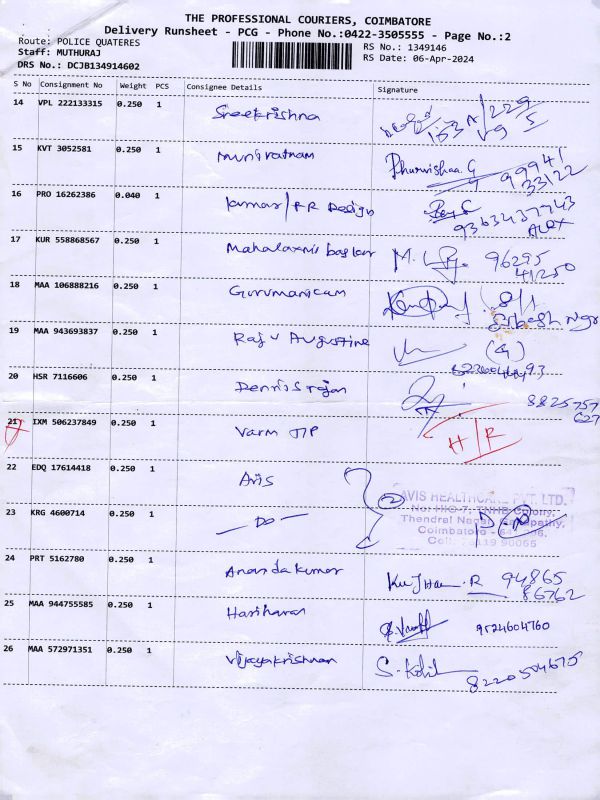 THE PROFESSIONAL COURIERS, COIMBATORE
Delivery Runsheet - PCG - Phone No.:0422-3505555 - Page No.:2
Route: POLICE QUATERES RS No.: 1349146
Staff: MUTHURAJ RS Date: 06-Apr-2024
DRS No.: DCJB134914602
S No Consignment No Weight PCS Consignee Details Signature
14 VPL 222133315 0.250 1 Sreekrishna
15 KVT 3052581 0.250 1 Muniratnam 99941
33122
16 PRO 16262386 0.040 1 Kumar/RR Design
9363437743
ALEX
17 KUR 558868567 0.250 1 Mahalaxmi baskar M. 96295
41250
18 MAA 106888216 0.250 1 Gurumanicam
19 MAA 943693837 0.250 1 Raju Augustine
20 HSR 7116606 0.250 1 Dennis rajan 8825757
627
21 IXM 506237849 0.250 1 Varm TIP H/R
22 EDQ 17614418 0.250 1 Avis 2
AVIS HEALTHCARE PVT. LTD.
23 KRG 4600714 0.250 1 — Do —
Colony,
Thendral Nagar,
Coimbatore
24 PRT 5162780 0.250 1 Ananda kumar R 94865
86762
25 MAA 944755585 0.250 1 Hariharan 9524604760
26 MAA 572971351 0.250 1 Vijayakrishnan S. Kohil
8220504675